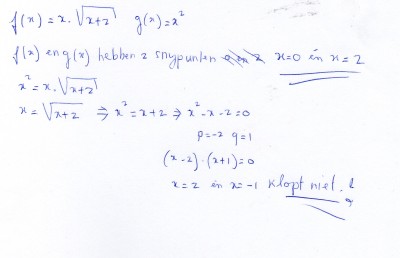 f(x) = x · √(x+2)   g(x) = x²
f(x) en g(x) hebben 2 snypunten x=0 en x=2
x² = x · √(x+2)
x = √(x+2) ⇒ x² = x+2 ⇒ x² - x - 2 = 0
p=-2 q=1
(x-2)·(x+1)=0
x = 2 en x=-1 klopt niet.